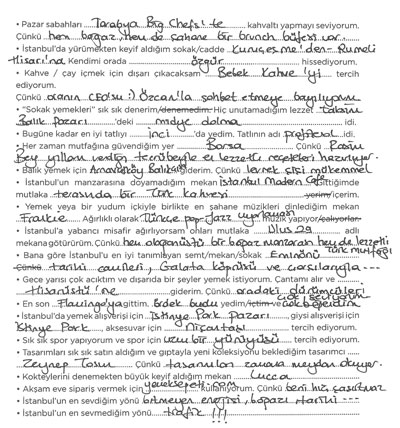 • Pazar sabahları Tarabya Big Chefs'te kahvaltı yapmayı seviyorum.
Çünkü hem boğaz, hem de şahane bir brunch büfesi var.
• İstanbul'da yürümekten keyif aldığım sokak/cadde Kuruçeşme'den - Rumeli
Hisarı'na Kendimi orada özgür hissediyorum.
• Kahve / çay içmek için dışarı çıkacaksam Bebek Kahve'yi tercih
ediyorum.
Çünkü oranın CEO'su :) Özcan'la sohbet etmeye bayılıyorum
• "Sokak yemekleri" sık sık denerim/denemedim. Hiç unutamadığım lezzet Taksim
Balık pazarı 'deki midye dolma idi.
• Bugüne kadar en iyi tatlıyı inci 'da yedim. Tatlının adı profiterol idi.
• Her zaman mutfağına güvendiğim yer Borsa Çünkü Rasim
Bey yılların verdiği tecrübeyle en lezzetli reçeteleri hazırlıyor.
• Balık yemek için Arnavutköy Balıkçı giderim. Çünkü levrek şişi mükemmel
• İstanbul'un manzarasına doyamadığım mekan İstanbul Modern Cafe Gittiğimde
mutlaka terasında bir Türk kahvesi yerim/içerim.
• Yemek veya bir yudum içkiyle birlikte en sahane müzikleri dinlediğim mekan
Frankie Ağırlıklı olarak Türkçe pop-Jazz uyarlanan müzik yapıyor/çalıyorlar.
• İstanbul'a yabancı misafir ağırlıyorsam onları mutlaka Ulus 29 adlı
mekana götürürüm. Çünkü hem olağanüstü bir boğaz manzarası hem de lezzetli
Türk mutfağı
• Bana göre İstanbul'u en iyi tanımlayan semt/mekan/sokak Eminönü
Çünkü tarihi camileri, Galata köprüsü ve çarşılarıyla ---
• Gece yarısı çok acıktım ve dışarıda bir şeyler yemek istiyorum. Çantamı alır ve
Hisarüstü'ne giderim. Çünkü oradaki dürümcüleri
çok seviyorum
• En son Flamingo'ya gittim. ördek budu yedim/içtim ve çok beğendim
• İstanbul'da yemek alışverişi için İstinye Park Pazarı, giysi alışverişi için
İstinye Park, aksesuvar için Nişantaşı tercih ediyorum.
• Sık sık spor yapıyorum ve spor için uzun bir yürüyüşü tercih ediyorum.
• Tasarımları sık sık satın aldığım ve gıptayla yeni koleksiyonu beklediğim tasarımcı
Zeynep Tosun Çünkü tasarımları zamana meydan okuyor.
• Kokteylerini denemekten büyük keyif aldığım mekan Lucca
• Akşam eve sipariş vermek için yemeksepeti.com kullanıyorum. Çünkü beni hiç şaşırtmaz
• İstanbul'un en sevdiğim yönü bitmeyen enerjisi, boğazı tarihi ---
• İstanbul'un en sevmediğim yönü trafik !!!